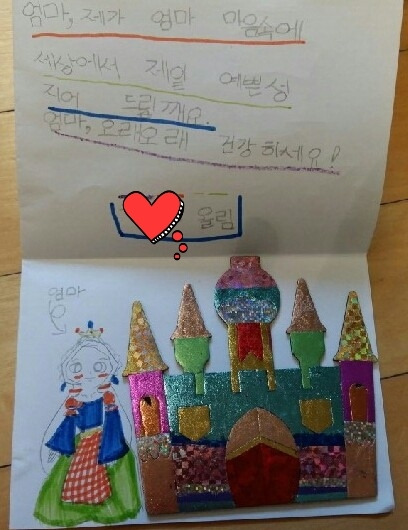 엄마, 제가 엄마 마음속에
세상에서 제일 예쁜 성
지어 드릴께요.
엄마, 오래오래 건강하세요!
올림
엄마